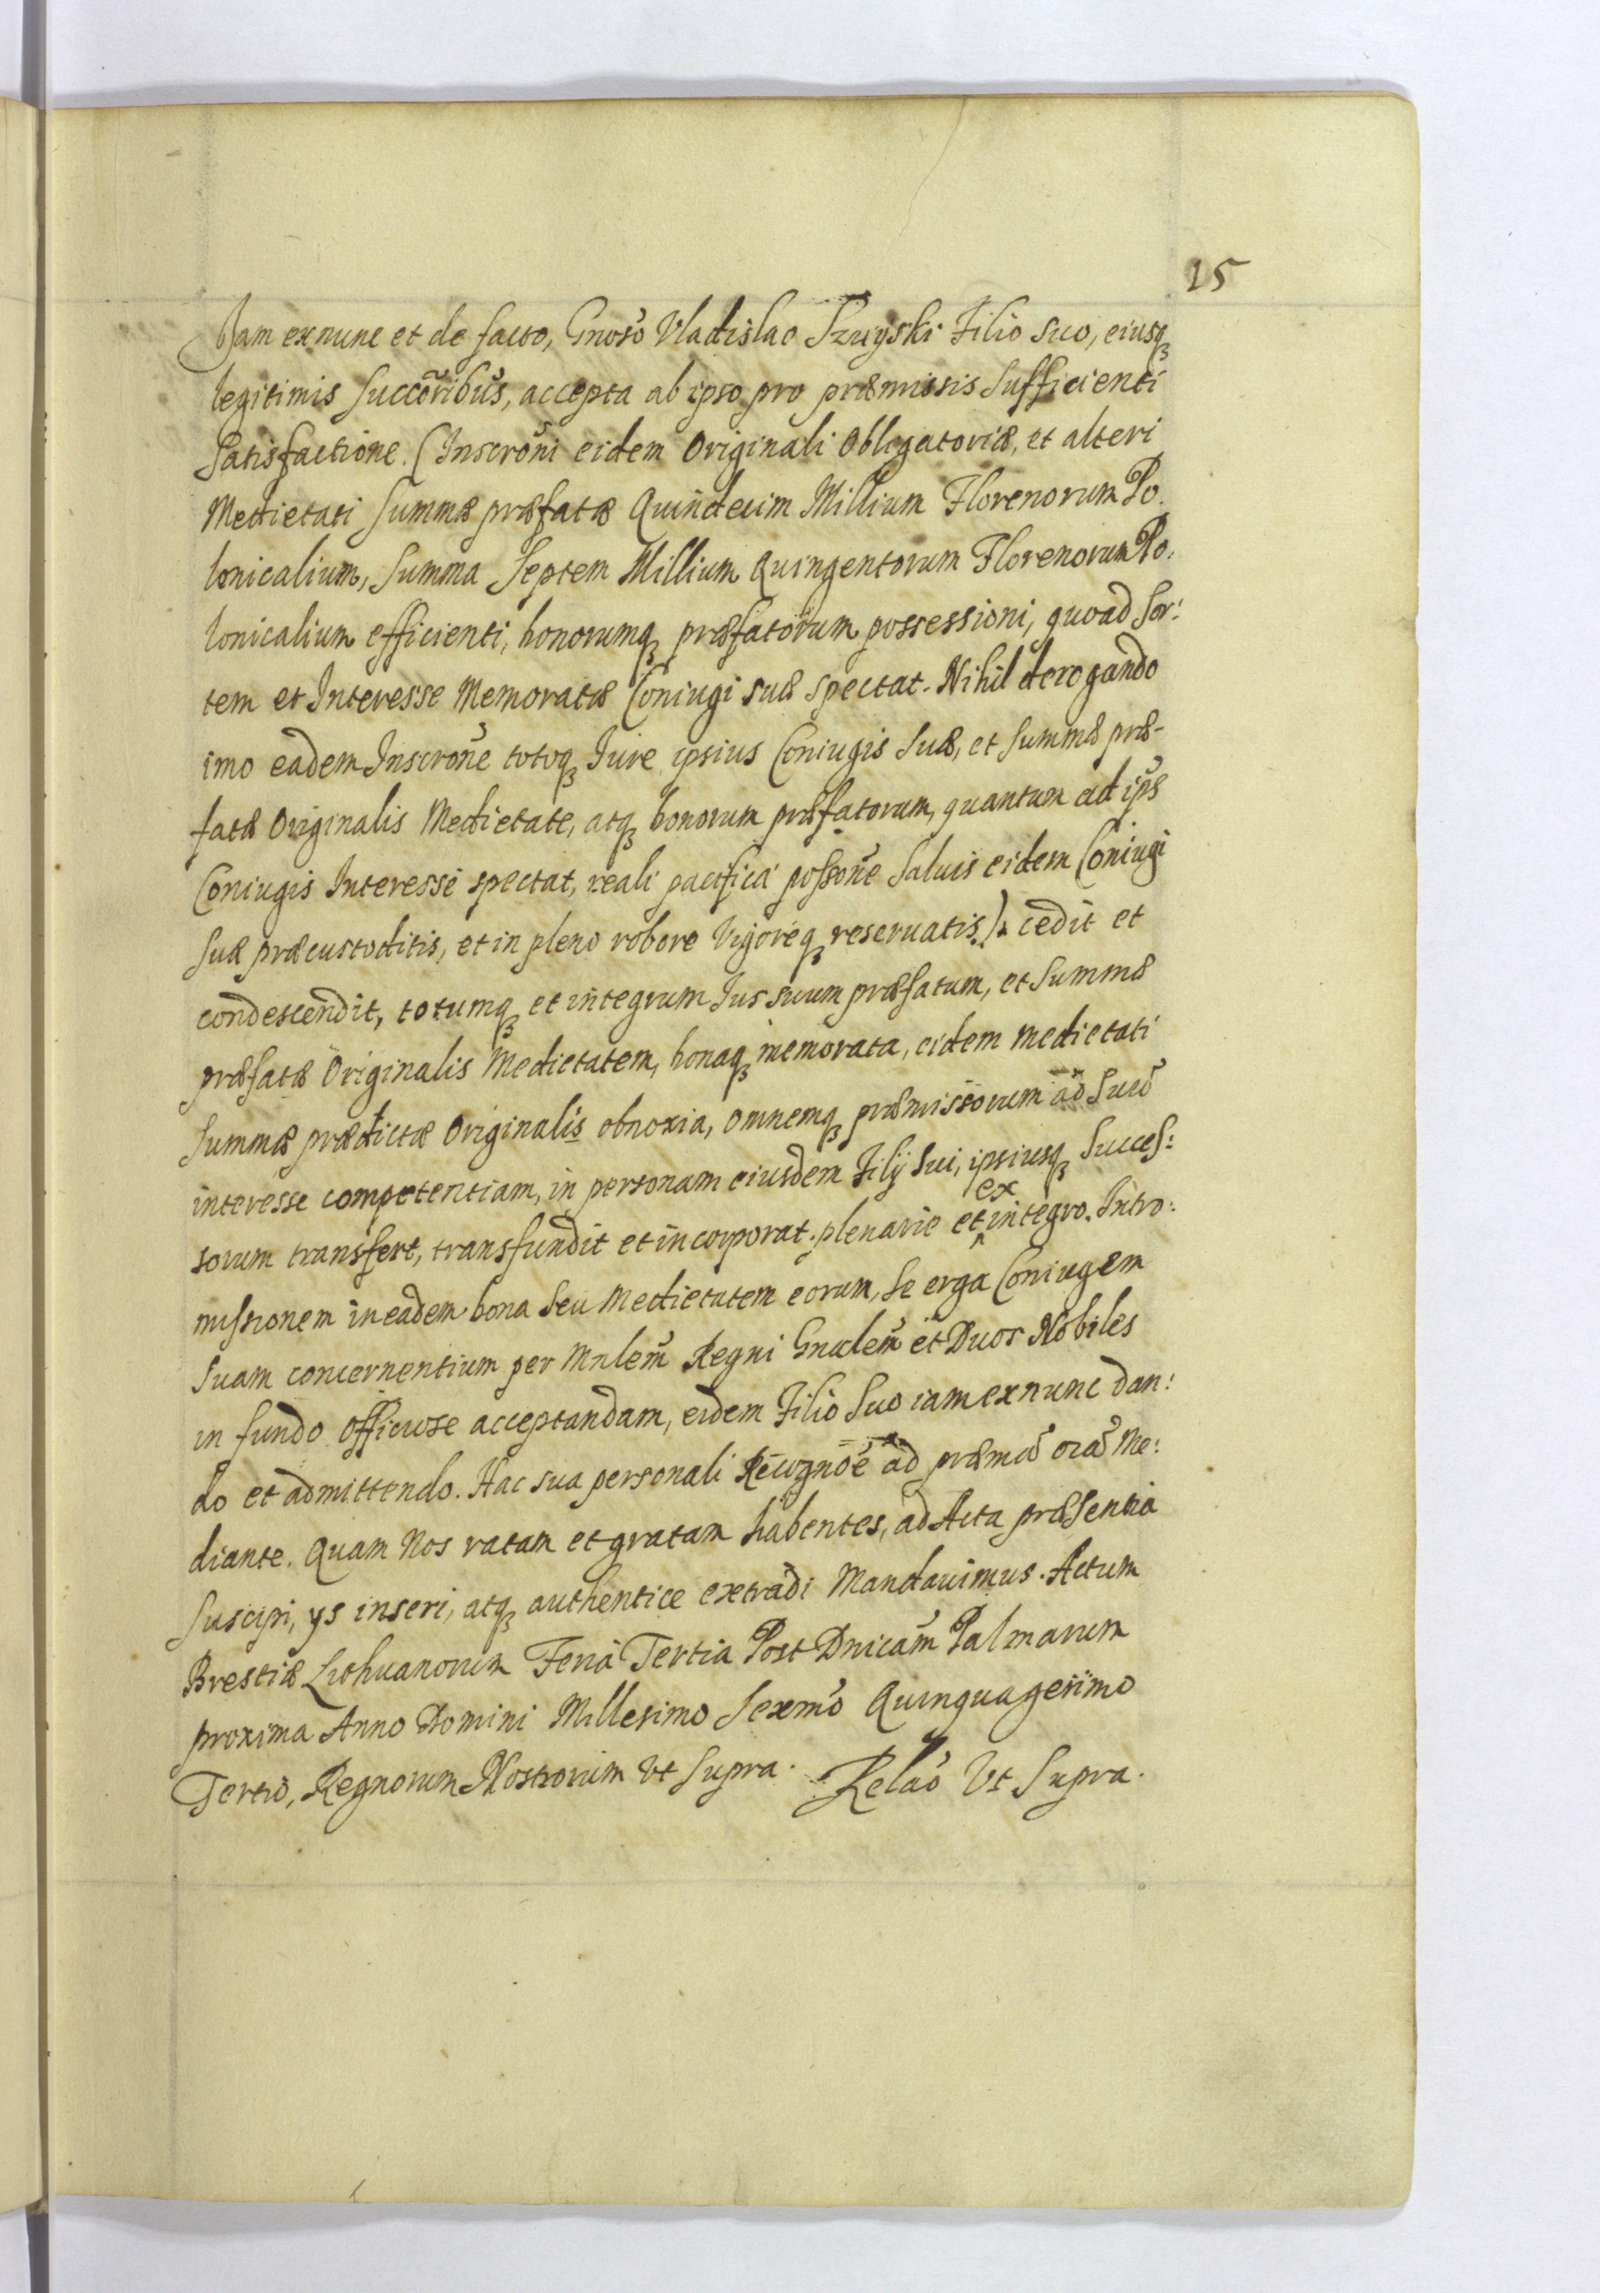 25
Iam exnunc et de facto, Gnoso Vladislao Szuyski Filio suo, eiusq
legitimis succoribus, accepta ab ipso pro præmissis sufficienti
satisfactione. (Inscroni eidem Originali Obligatoriæ, et alteri
Medietati summæ præfatæ Quindecim Millium Florenorum Po.
lonicalium, summa Septem Millium Quingentorum Florenorum Po.
lonicalium efficienti, bonorumq præfatorum possessioni, quoad sor:
tem et Interesse Memoratæ Coniugi suæ spectat. Nihil derogando
imo eadem Inscrone totoq Iure ipsius Coniugis suæ, et summæ præ-
fatæ Originalis Medietate, atq bonorum præfatorum, quantum ad ips
Coniugis Interesse spectat, reali pacifica possone saluis eidem Coniugi
suæ præcustoditis, et in pleno robore Vigoreq reseruatis). cedit et
condescendit, totumq et integrum Ius suum præfatum, et summæ
præfatæ Originalis Medietatem, bonaq memorata, eidem medietati
summæ prædictæ Originalis obnoxia, omnemq præmissorum ad suu
interesse competentiam, in personam eiusdem Filij sui, ipsiusq succes:
sorum transfert, transfundit et incorporat. plenarie et ex integro. Intro:
missionem in eadem bona seu Medietatem eorum, se erga Coniugem
suam concernentium per Mnlem Regni Gnalem et Duos Nobiles
in fundo officiose acceptandam, eidem Filio suo iam exnunc dan:
do et admittendo. Hac sua personali Recognoe ad præmia oia Me:
diante. Quam Nos ratam et gratam habentes, ad Acta præsentia
suscipi, ys inseri, atq authentice extradi Mandauimus. Actum
Brestiæ Lithuanorum Feria Tertia Post Dnicam Palmarum
proxima Anno Domini Millesimo Sexmo Quinquagesimo
Tertio, Regnorum Nostrorum Vt supra. Relao Vt Supra.